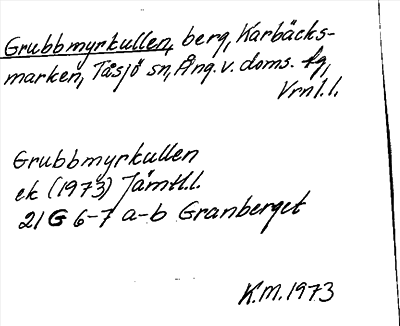 Grubbmyrkullen, berg, Karbäcks-
marken, Tåsjö sn, Ång. v. doms. fg,
Vrnl. l.
Grubbmyrkullen
ek (1973) Jämtl. l.
21 G 6-7 a-b Granberget
K.M. 1973